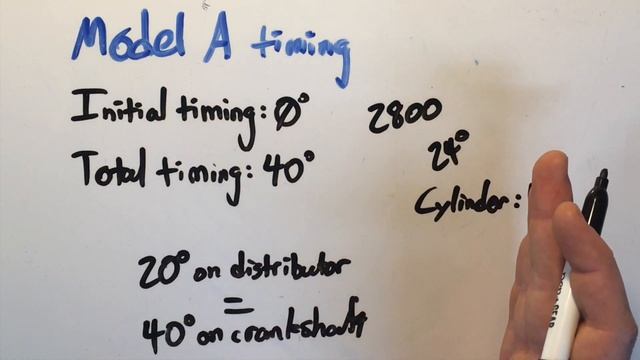 Model A timing
Initial timing: 0°
Total timing: 40°
2800
24°
Cylinder:
20° on distributor
=
40° on crankshaft